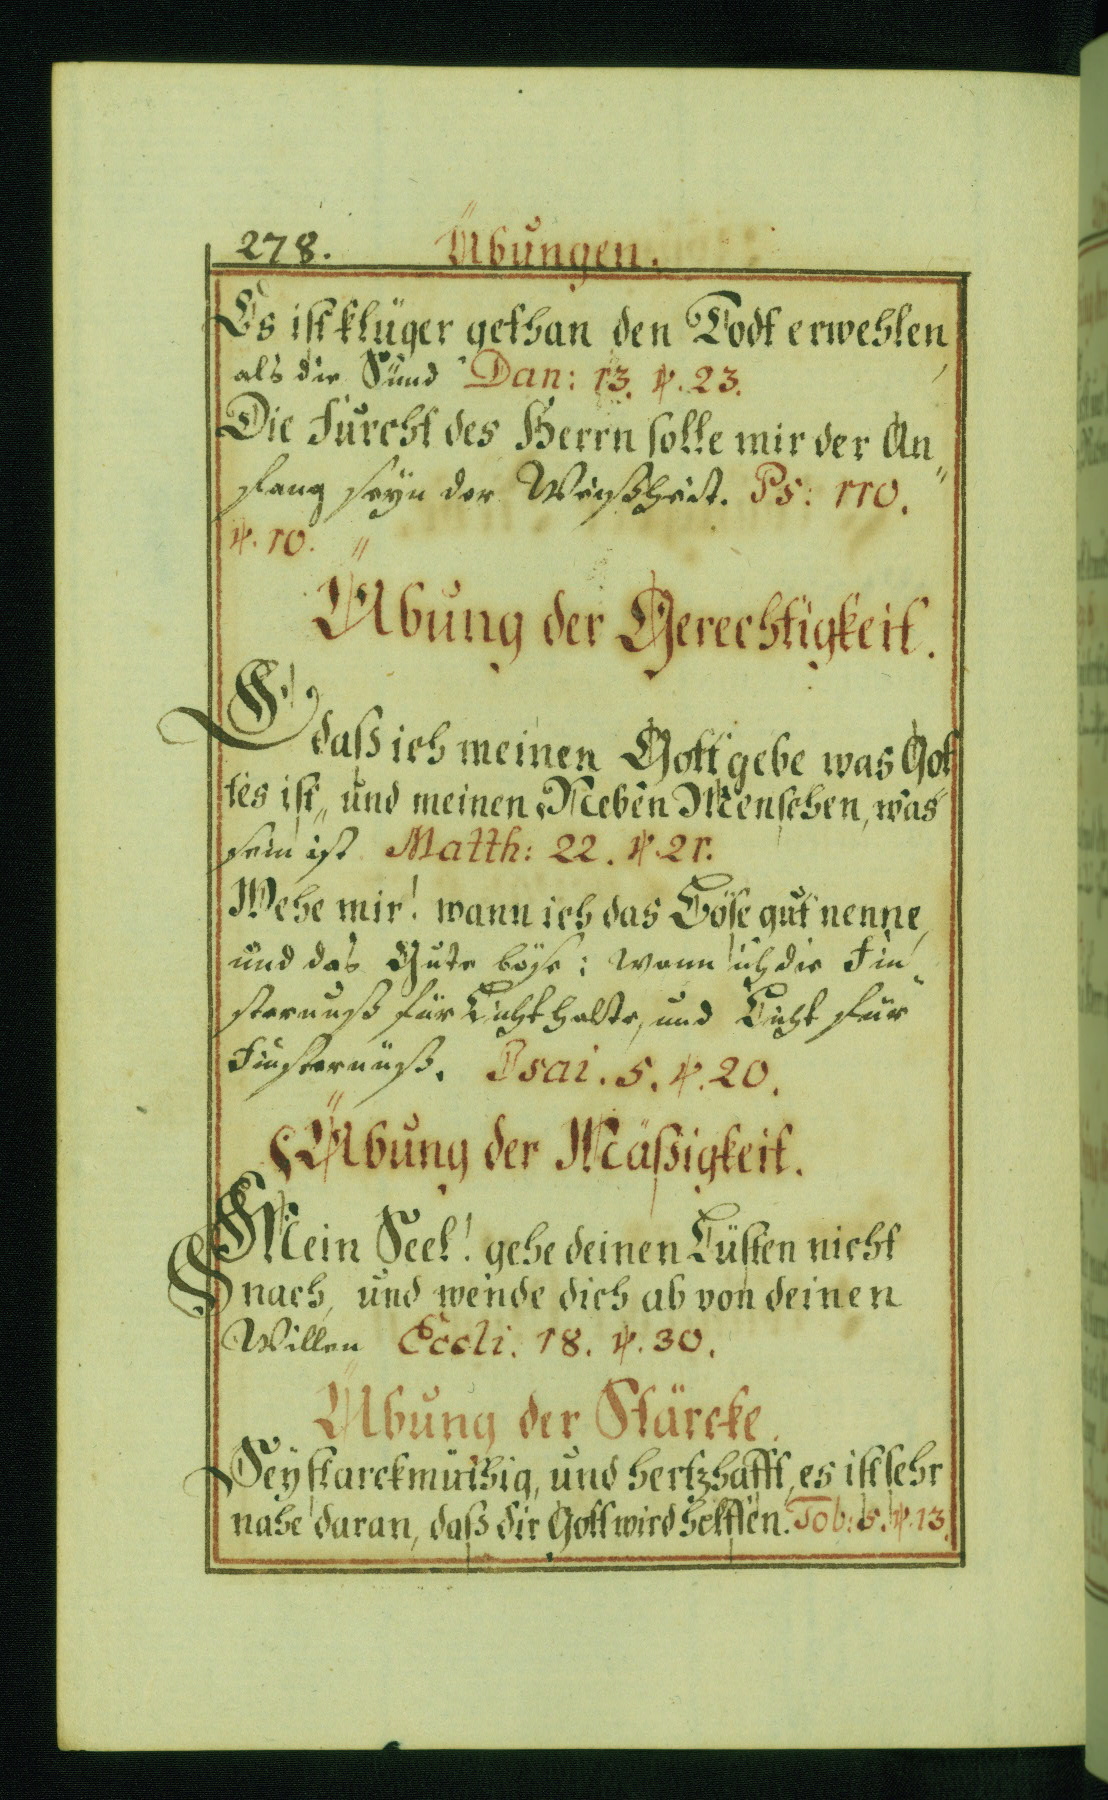 278. Übungen.
Es ist klüger gethan den Todt erwehlen,
als die Sünd Dan: 13. ℣. 23.
Die Furcht des Herrn solle mir der An
fang seÿn der Weißheit. Ps: 110.
℣. 10.
Übung der Gerechtigkeit.
O! daß ich meinen Gott gebe was Got
tes ist, und meinen Neben Menschen, was
sein ist Matth: 22. ℣. 21.
Wehe mir! wann ich das Böse gut nenne,
und das Gute böse; wann ich die Fin
sternuß für Licht halte, und Licht für
Finsternuß. Isai. 5. ℣. 20.
Übung der Mäßigkeit.
Mein Seel! gehe deinen Lüsten nicht
nach, und wende dich ab von deinen
Willen Eccli. 18. ℣. 30.
Übung der Stärcke.
Seÿ starckmüthig, und hertzhafft, es ist sehr
nahe daran, daß dir Gott wird helffen. Tob: 5. ℣. 13.